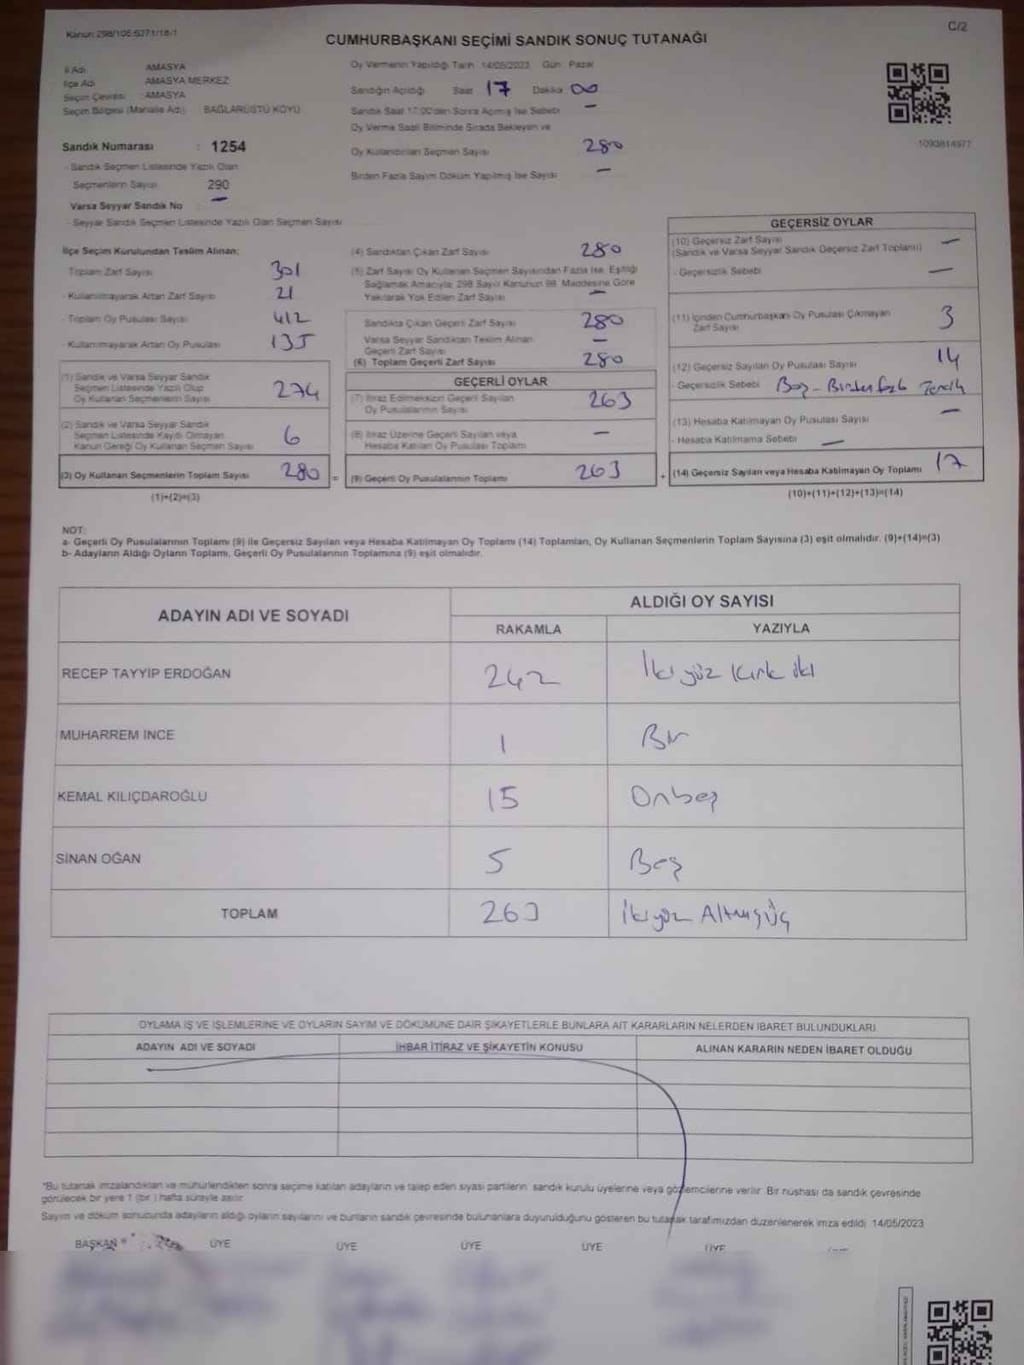 Kanun 298/105-6271/18/1
C/2
CUMHURBAŞKANI SEÇİMİ SANDIK SONUÇ TUTANAĞI
İl Adı : AMASYA
İlçe Adı : AMASYA MERKEZ
Seçim Çevresi : AMASYA
Seçim Bölgesi (Mahalle Adı) : BAĞLARÜSTÜ KÖYÜ
Sandık Numarası : 1254
- Sandık Seçmen Listesinde Yazılı Olan
Seçmenlerin Sayısı 290
Varsa Seyyar Sandık No –
- Seyyar Sandık Seçmen Listesinde Yazılı Olan Seçmen Sayısı
Oy Vermenin Yapıldığı Tarih 14/05/2023 Gün: Pazar
Sandığın Açıldığı Saat 17 Dakika 00
Sandık Saat 17:00'den Sonra Açılmış İse Sebebi –
Oy Verme Saati Bitiminde Sırada Bekleyen ve
Oy Kullandırılan Seçmen Sayısı 280
Birden Fazla Sayım Döküm Yapılmış İse Sayısı –
1093814977
İlçe Seçim Kurulundan Teslim Alınan;
Toplam Zarf Sayısı 301
- Kullanılmayarak Artan Zarf Sayısı 21
- Toplam Oy Pusulası Sayısı 412
- Kullanılmayarak Artan Oy Pusulası 135
(1) Sandık ve Varsa Seyyar Sandık
Seçmen Listesinde Yazılı Olup
Oy Kullanan Seçmenlerin Sayısı 274
(2) Sandık ve Varsa Seyyar Sandık
Seçmen Listesinde Kayıtlı Olmayan
Kanun Gereği Oy Kullanan Seçmen Sayısı 6
(3) Oy Kullanan Seçmenlerin Toplam Sayısı 280 =
(1)+(2)=(3)
(4) Sandıktan Çıkan Zarf Sayısı 280
(5) Zarf Sayısı Oy Kullanan Seçmen Sayısından Fazla İse, Eşitliği
Sağlamak Amacıyla; 298 Sayılı Kanunun 98. Maddesine Göre
Yakılarak Yok Edilen Zarf Sayısı –
Sandıkta Çıkan Geçerli Zarf Sayısı 280
Varsa Seyyar Sandıktan Teslim Alınan
Geçerli Zarf Sayısı –
(6) Toplam Geçerli Zarf Sayısı 280
GEÇERLİ OYLAR
(7) İtiraz Edilmeksizin Geçerli Sayılan
Oy Pusulalarının Sayısı 263
(8) İtiraz Üzerine Geçerli Sayılan veya
Hesaba Katılan Oy Pusulası Toplamı –
(9) Geçerli Oy Pusulalarının Toplamı 263 +
GEÇERSİZ OYLAR
(10) Geçersiz Zarf Sayısı –
(Sandık ve Varsa Seyyar Sandık Geçersiz Zarf Toplamı)
- Geçersizlik Sebebi –
(11) İçinden Cumhurbaşkanı Oy Pusulası Çıkmayan
Zarf Sayısı 3
(12) Geçersiz Sayılan Oy Pusulası Sayısı 14
- Geçersizlik Sebebi Boş - Birden fazla Tercih
(13) Hesaba Katılmayan Oy Pusulası Sayısı –
- Hesaba Katılmama Sebebi –
(14) Geçersiz Sayılan veya Hesaba Katılmayan Oy Toplamı 17
(10)+(11)+(12)+(13)=(14)
NOT:
a- Geçerli Oy Pusulalarının Toplamı (9) ile Geçersiz Sayılan veya Hesaba Katılmayan Oy Toplamı (14) Toplamları, Oy Kullanan Seçmenlerin Toplam Sayısına (3) eşit olmalıdır. (9)+(14)=(3)
b- Adayların Aldığı Oyların Toplamı, Geçerli Oy Pusulalarının Toplamına (9) eşit olmalıdır.
ADAYIN ADI VE SOYADI
ALDIĞI OY SAYISI
RAKAMLA YAZIYLA
RECEP TAYYİP ERDOĞAN 242 İki yüz Kırk iki
MUHARREM İNCE 1 Bir
KEMAL KILIÇDAROĞLU 15 Onbeş
SİNAN OĞAN 5 Beş
TOPLAM 263 İkiyüz Altmışüç
OYLAMA İŞ VE İŞLEMLERİNE VE OYLARIN SAYIM VE DÖKÜMÜNE DAİR ŞİKAYETLERLE BUNLARA AİT KARARLARIN NELERDEN İBARET BULUNDUKLARI
ADAYIN ADI VE SOYADI İHBAR İTİRAZ VE ŞİKAYETİN KONUSU ALINAN KARARIN NEDEN İBARET OLDUĞU
*Bu tutanak imzalandıktan ve mühürlendikten sonra seçime katılan adayların ve talep eden siyasi partilerin sandık kurulu üyelerine veya gözlemcilerine verilir. Bir nüshası da sandık çevresinde
görülecek bir yere 1 (bir) hafta süreyle asılır.
Sayım ve döküm sonucunda adayların aldığı oyların sayılarını ve bunların sandık çevresinde bulunanlara duyurulduğunu gösteren bu tutanak tarafımızdan düzenlenerek imza edildi. 14/05/2023
BAŞKAN ÜYE ÜYE ÜYE ÜYE ÜYE